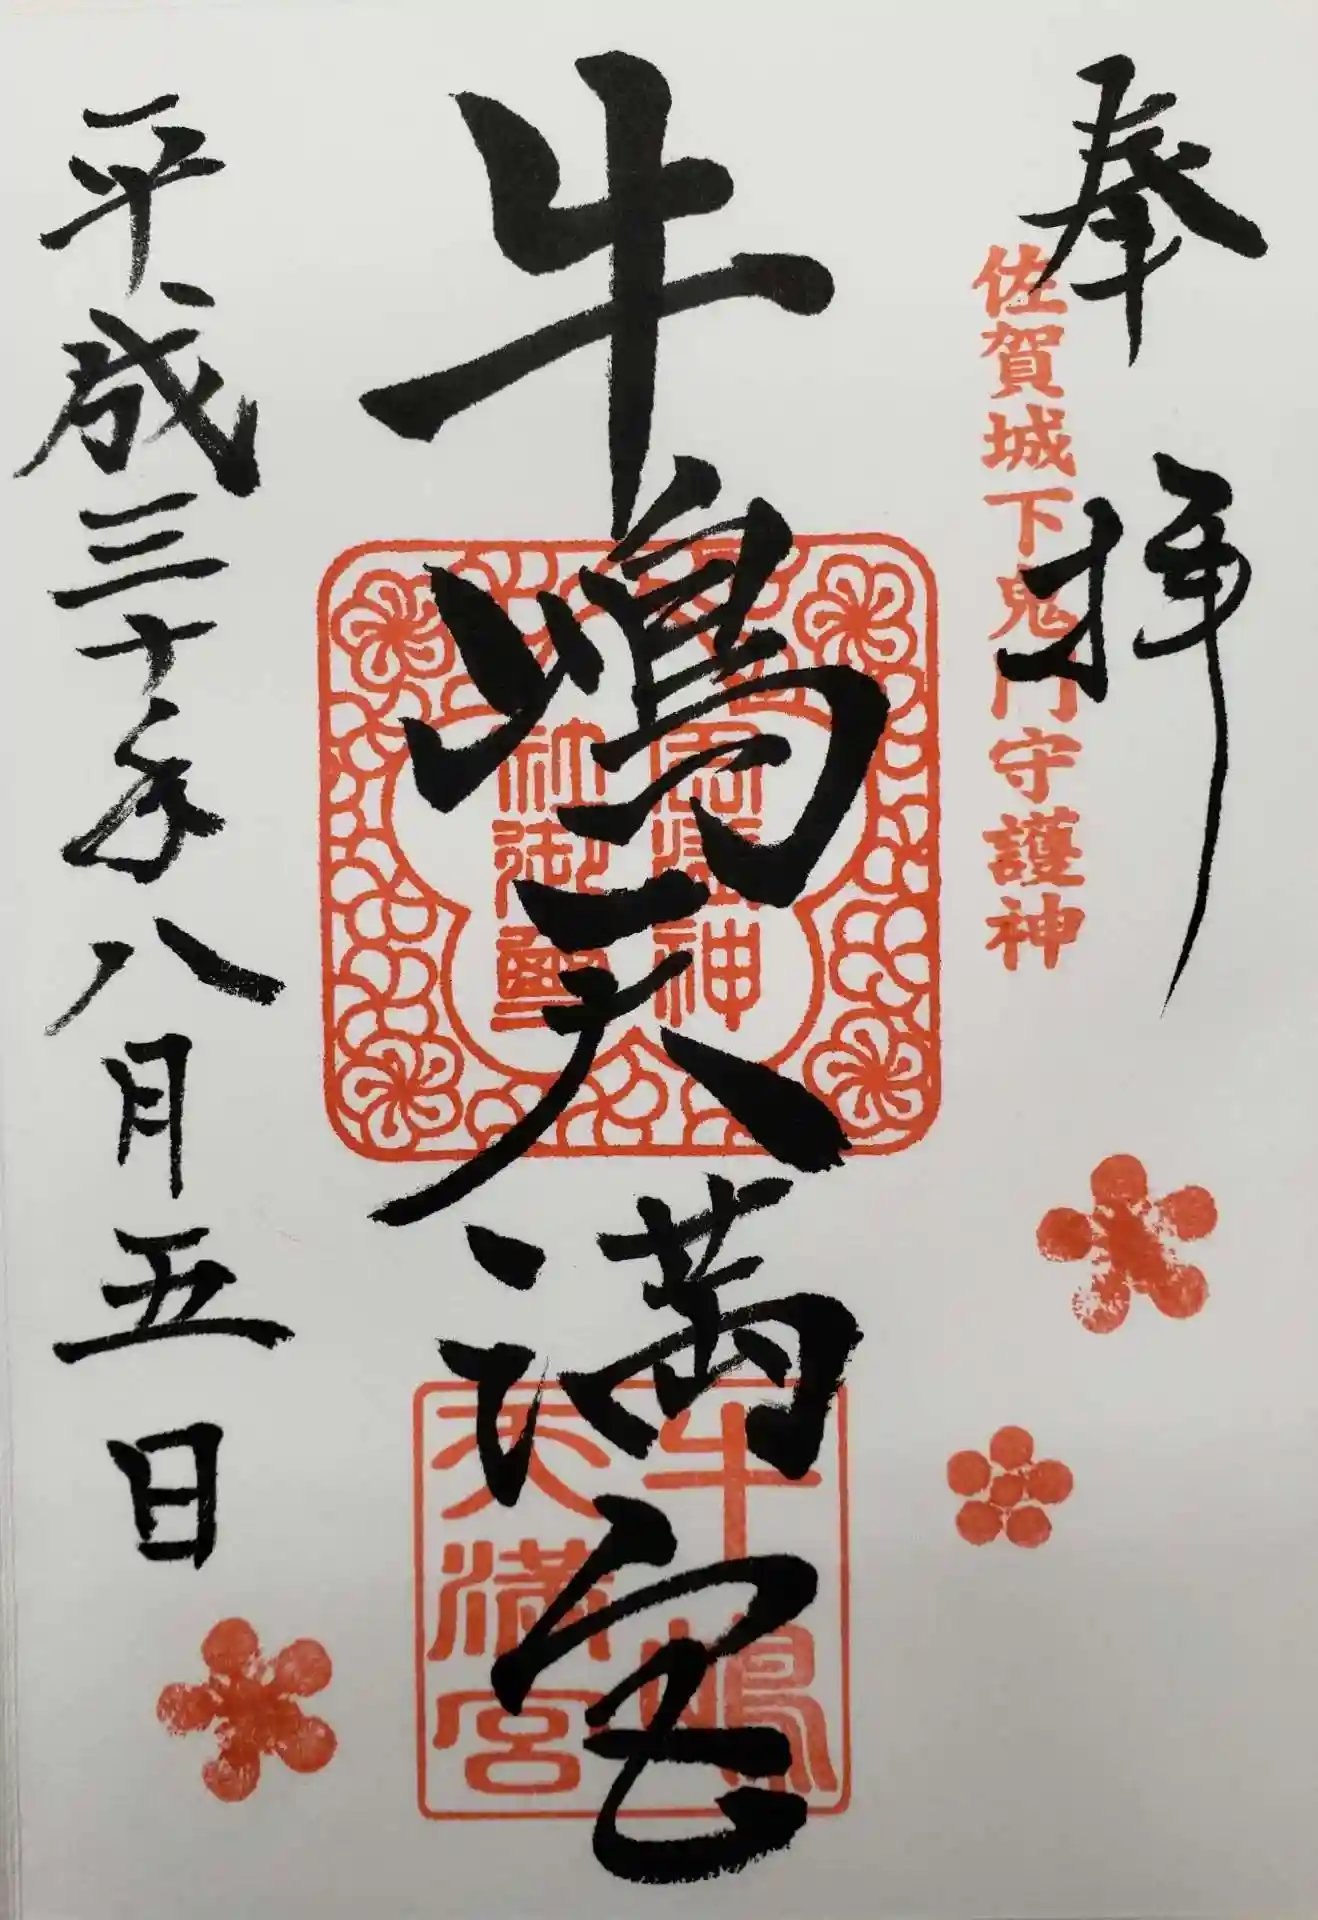 奉拝
佐賀城下鬼門守護神
牛嶋天満宮
牛嶋
天満宮
平成三十年八月五日